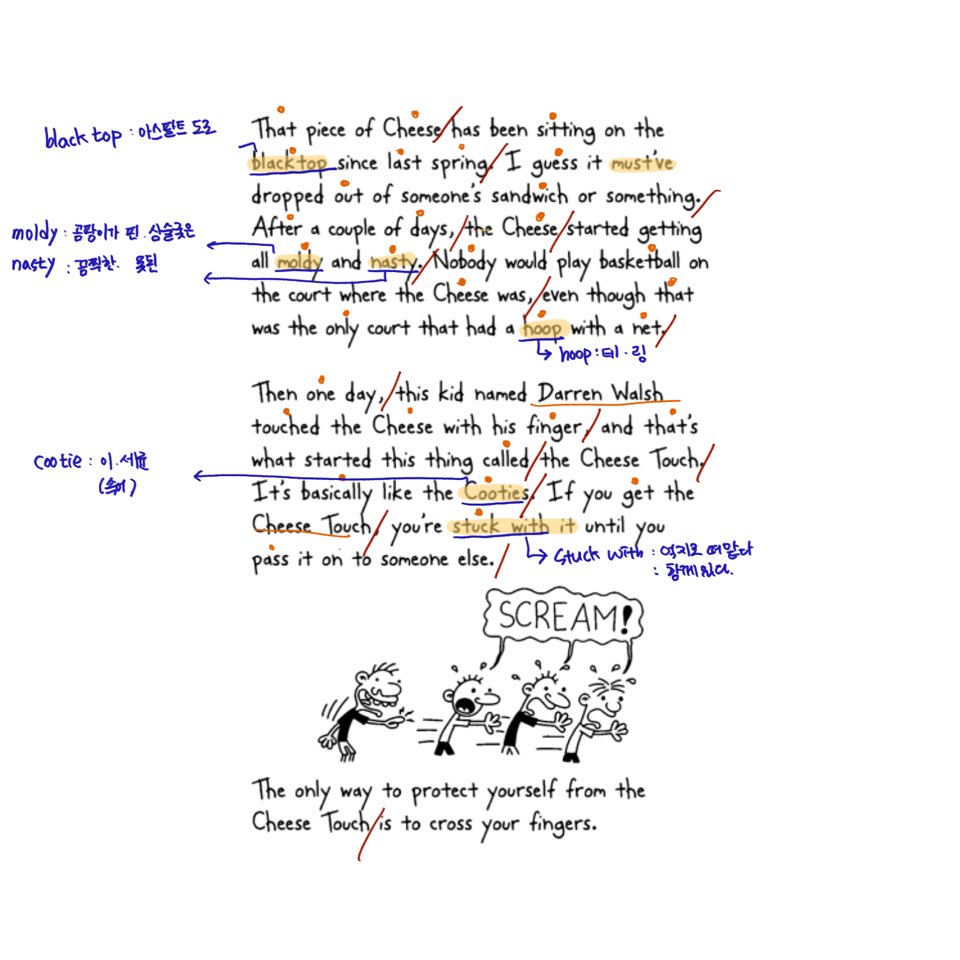 black top : 아스팔트 도로
That piece of Cheese has been sitting on the
blacktop since last spring. I guess it must've
dropped out of someone's sandwich or something.
After a couple of days, the Cheese started getting
moldy : 곰팡이가 핀. 심술궂은
all moldy and nasty. Nobody would play basketball on
nasty : 끔찍한. 못된
the court where the Cheese was, even though that
was the only court that had a hoop with a net.
hoop : 테. 링
Then one day, this kid named Darren Walsh
touched the Cheese with his finger, and that's
what started this thing called the Cheese Touch.
cootie : 이. 세균
(속어)
It's basically like the Cooties. If you get the
Cheese Touch, you're stuck with it until you
pass it on to someone else.
stuck with : 억지로 떠맡다
: 함께있다.
SCREAM!
The only way to protect yourself from the
Cheese Touch is to cross your fingers.